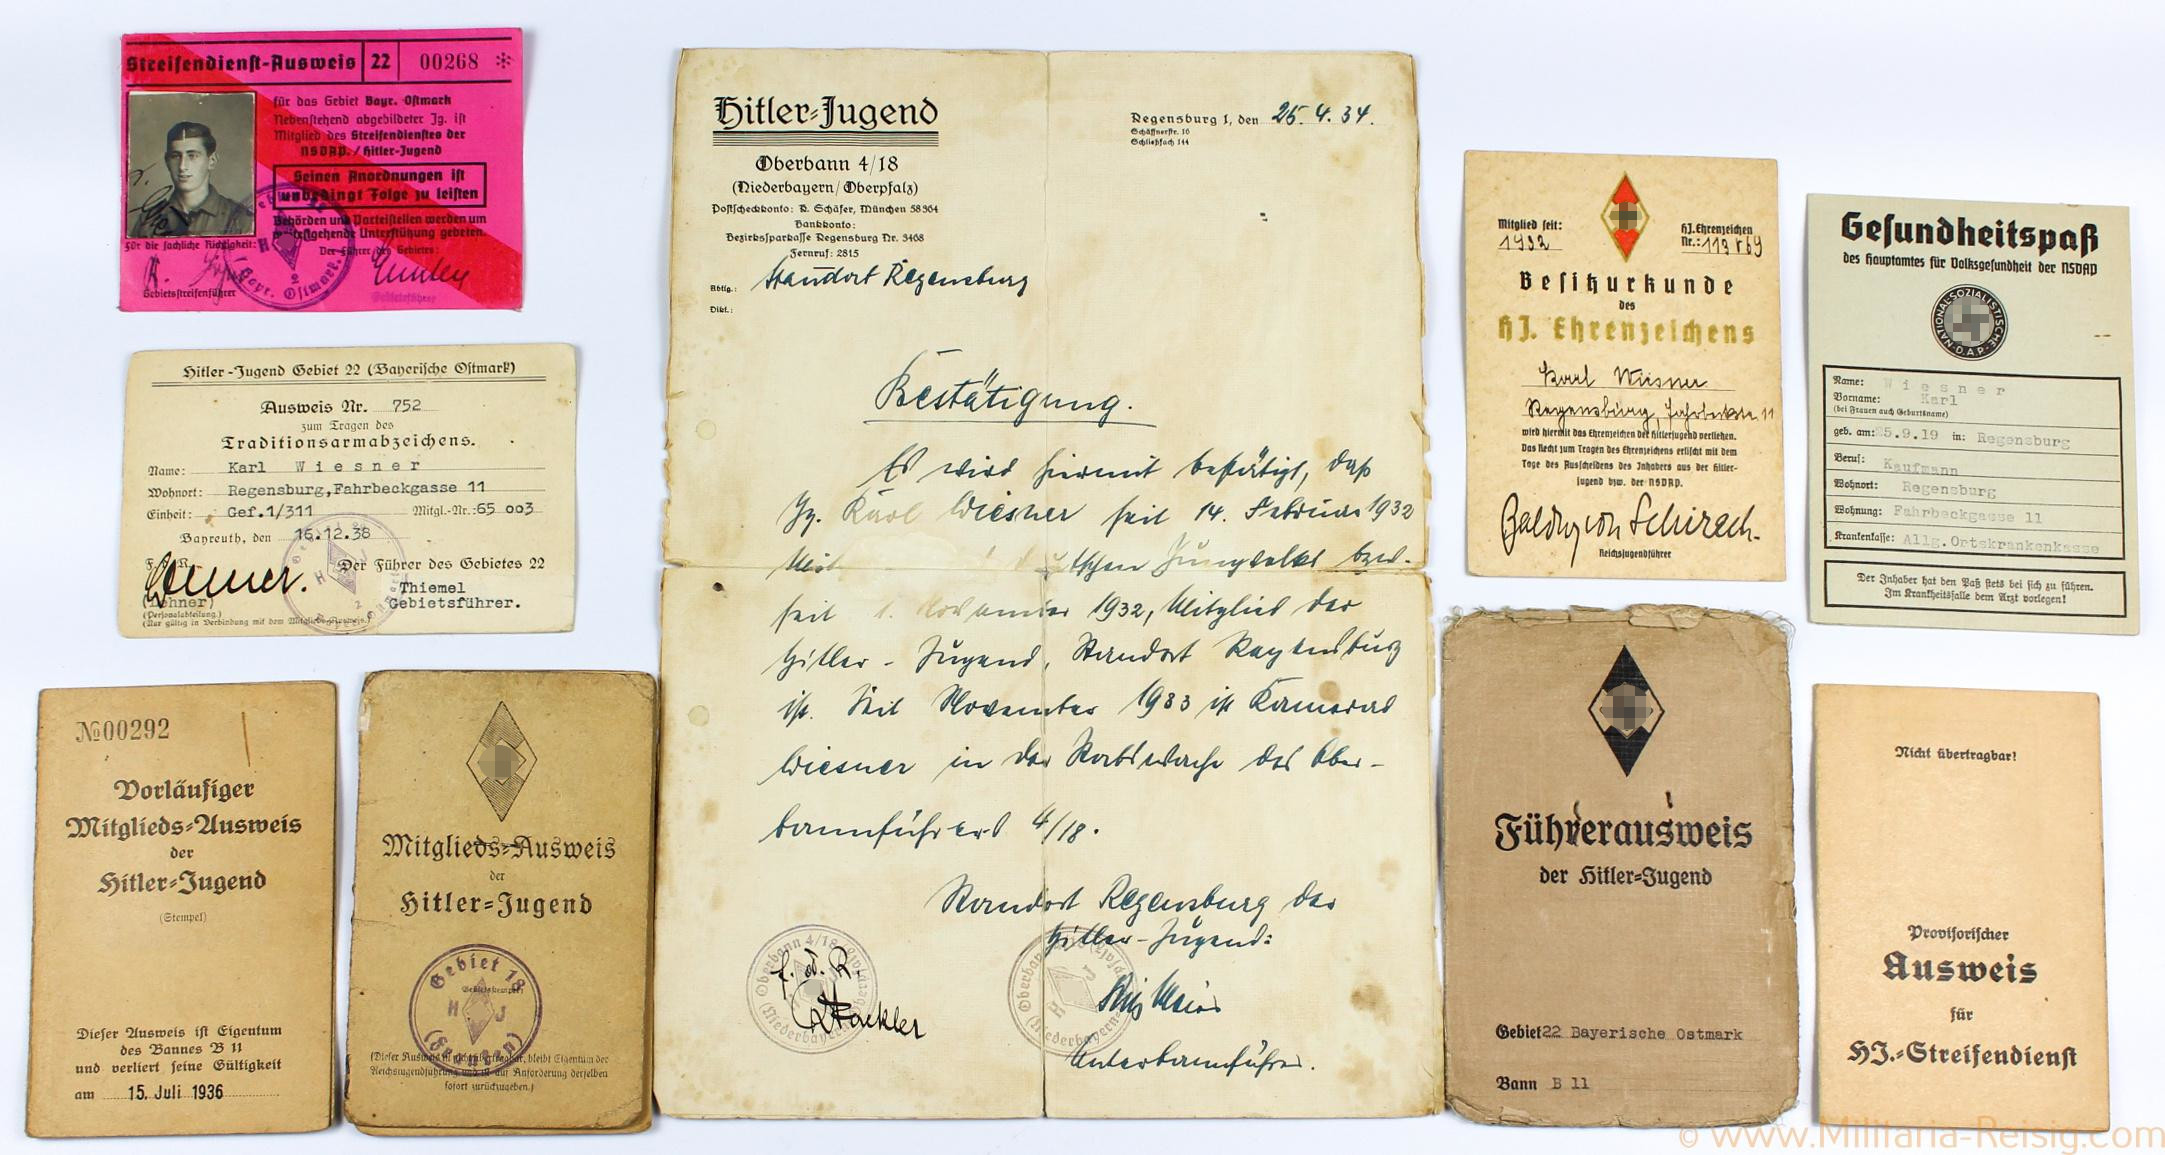 Streifendienst-Ausweis 22 00268 *
für das Gebiet Bayr. Ostmark
Nebenstehend abgebildeter Jg. ist
Mitglied des Streifendienstes der
NSDAP./Hitler-Jugend
Seinen Anordnungen ist
unbedingt Folge zu leisten
Behörden und Parteistellen werden um
weitestgehende Unterstützung gebeten.
Für die sachliche Richtigkeit:
Der Führer des Gebietes:
Gebietsstreifenführer
Gebietsführer
Bayr. Ostmark
Hitler-Jugend Gebiet 22 (Bayerische Ostmark)
Ausweis Nr. 752
zum Tragen des
Traditionsarmabzeichens.
Name: Karl Wiesner
Wohnort: Regensburg,Fahrbeckgasse 11
Einheit: Gef.1/311 Mitgl.-Nr.: 65 003
Bayreuth, den 16.12.38
F. d. R. Der Führer des Gebietes 22
Thiemel
(Lehner) Gebietsführer.
(Personalabteilung.)
(Nur gültig in Verbindung mit dem Mitglieds-Ausweis.)
№ 00292
Vorläufiger
Mitglieds-Ausweis
der
Hitler-Jugend
(Stempel)
Dieser Ausweis ist Eigentum
des Bannes B 11
und verliert seine Gültigkeit
am 15. Juli 1936
Mitglieds-Ausweis
der
Hitler-Jugend
Gebiet 18
Gebietsstempel
H J
(Franken)
(Dieser Ausweis ist nicht übertragbar, bleibt Eigentum der
Reichsjugendführung und ist auf Anforderung derselben
sofort zurückzugeben.)
Hitler-Jugend
Oberbann 4/18
(Niederbayern/Oberpfalz)
Postscheckkonto: R. Schäfer, München 58364
Bankkonto:
Bezirkssparkasse Regensburg Nr. 3468
Fernruf: 2815
Abtlg.: Standort Regensburg
Dikt.:
Regensburg 1, den 25.4.34.
Schäffnerstr. 16
Schließfach 144
Bestätigung.
Es wird hiermit bestätigt, daß
Jg. Karl Wiesner seit 14. Februar 1932
deutschen Jungvolks bzw.
seit 1. November 1932, Mitglied der
Hitler-Jugend, Standort Regensburg
ist. Seit November 1933 ist Kamerad
Wiesner in der Stabswache des Ober-
bannführers 4/18.
Standort Regensburg der
Hitler-Jugend:
f. d. R.
Unterbannführer.
Oberbann 4/18
(Niederbayern
H J
Mitglied seit: 1932
HJ. Ehrenzeichen Nr.: 113869
Besitzurkunde
des
HJ. Ehrenzeichens
Karl Wiesner
Regensburg, Fahrbeckstr. 11
wird hiermit das Ehrenzeichen der Hitlerjugend verliehen.
Das Recht zum Tragen des Ehrenzeichens erlischt mit dem
Tage des Ausscheidens des Inhabers aus der Hitler-
jugend bzw. der NSDAP.
Baldur von Schirach.
Reichsjugendführer
Gesundheitspaß
des Hauptamtes für Volksgesundheit der NSDAP
NATIONAL-SOZIALISTISCHE
N.D.A.P.
Name: Wiesner
Vorname: Karl
(bei Frauen auch Geburtsname)
geb. am: 25.9.19 in: Regensburg
Beruf: Kaufmann
Wohnort: Regensburg
Wohnung: Fahrbeckgasse 11
Krankenkasse: Allg.Ortskrankenkasse
Der Inhaber hat den Paß stets bei sich zu führen.
Im Krankheitsfalle dem Arzt vorlegen!
Führerausweis
der Hitler-Jugend
Gebiet 22 Bayerische Ostmark
Bann B 11
Nicht übertragbar!
Provisorischer
Ausweis
für
HJ.-Streifendienst
© www.Militaria-Reisig.com